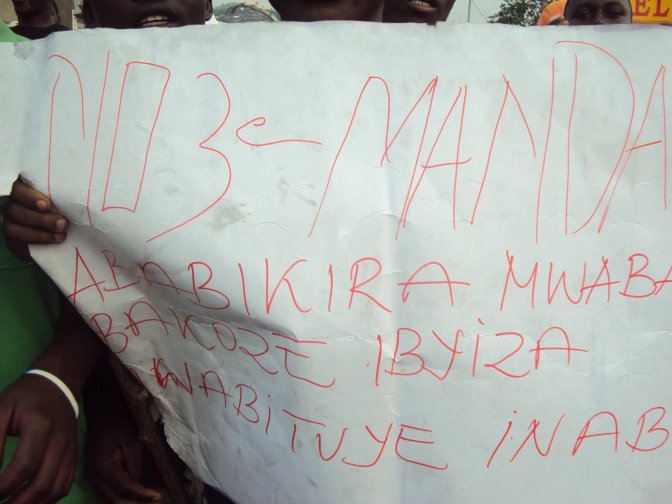 EL
NO 3e MANDA
ABABIKIRA MWABA
BAKOZE IBYIZA
WABITUYE INAB